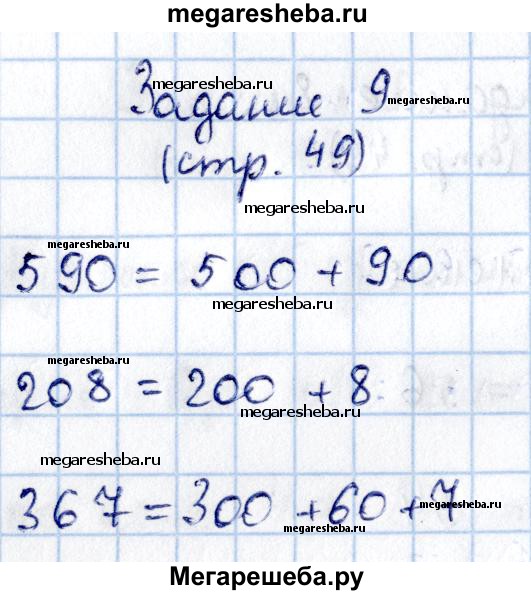 megaresheba.ru
megaresheba.ru
Задание 9
megaresheba.ru
(стр. 49)
megaresheba.ru
megaresheba.ru
590 = 500 + 90
megaresheba.ru
megaresheba.ru
208 = 200 + 8
megaresheba.ru
megaresheba.ru
367 = 300 + 60 + 7
megaresheba.ru
megaresheba.ru
Мегарешеба.ру